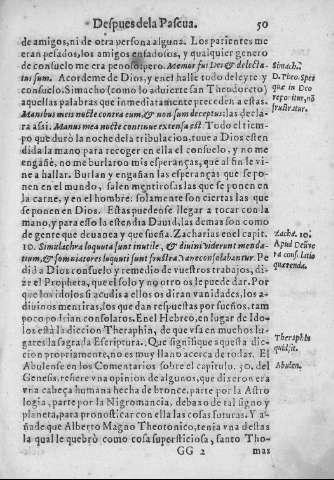 Despues de la Pascua. 50
de amigos, ni de otra persona alguna. Los parientes me
eran pesados, los amigos enfadosos, y qualquier genero
de consuelo me era penoso, pero. Memor fui Dei & delecta-
tus sum. Acordeme de Dios, y en el halle todo deleyte y
consuelo, Simacho (como lo aduierte san Theodoreto)
aquellas palabras que inmediatamente preceden a estas.
Manibus meis nocte contra eum, & non sum deceptus: las decla-
ra assi. Manus mea nocte continue extensa est. Todo el tiem-
po que durò la noche de la tribulacion, tuue a Dios esten-
dida la mano para recoger en ella el consuelo, y no me
engañè, no me burlaron mis esperanças, que al fin le vi-
ne a hallar. Burlan y engañan las esperanças que se po-
nen en el mundo, salen mentirosas las que se ponen en
la carne, y en el hombre. solamente son ciertas las que
se ponen en Dios. Estas puedense llegar a tocar con la
mano, y para esso la estendia Dauid, las demas son como
de gente que deuanea y que sueña. Zacharias en el capit.
10. Simulachra loquuta sunt inutile, & diuini viderunt menda-
tium, & somniatores loquuti sunt frustra vane consolabantur. Pe-
dida a Dios consuelo y remedio de vuestros trabajos, di-
ze el Propheta, que el solo y no otro os le puede dar. Por
que los idolos si acudis a ellos os diran vanidades, los a-
diuinos mentiras, los que dan respuestas por sueños, tam
poco podrian consolaros. En el Hebreo, en lugar de Ido-
los està la diccion Theraphin, de que vsa en muchos lu-
gares la sagrada Escriptura. Que signifique aquesta dic
cion propriamente, no es muy llano acerca de todar. El
Abulense en los Comentarios sobre el capitulo. 30. del
Genesis, refiere vna opinion de algunos, que dixeron era
vna cabeça humana hecha de bronce, parte por la Astro
logia, parte por la Nigromancia, debaxo de tal signo y
planeta, para pronosticar con ella las cosas futuras. Y a-
ñade que Alberto Magno Theotonico, tenia vna destas
la qual le quebrò como cosa supersticiosa, santo Tho-
GG 2 mas
Simach.
D. Theo. Spes
quæ in Deo
reponitur, nō
frustratur.
Zacha. 10.
Apud Deū ve
ra consolatio
querenda.
Theraphin
quid sit.
Abulen.